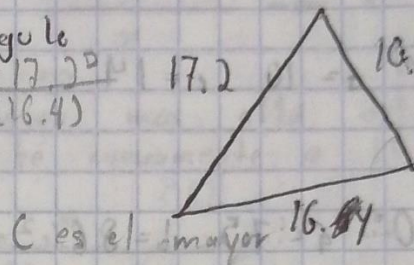 gulo
17.2²
16.4)
17.2
16.4
C es el mayor